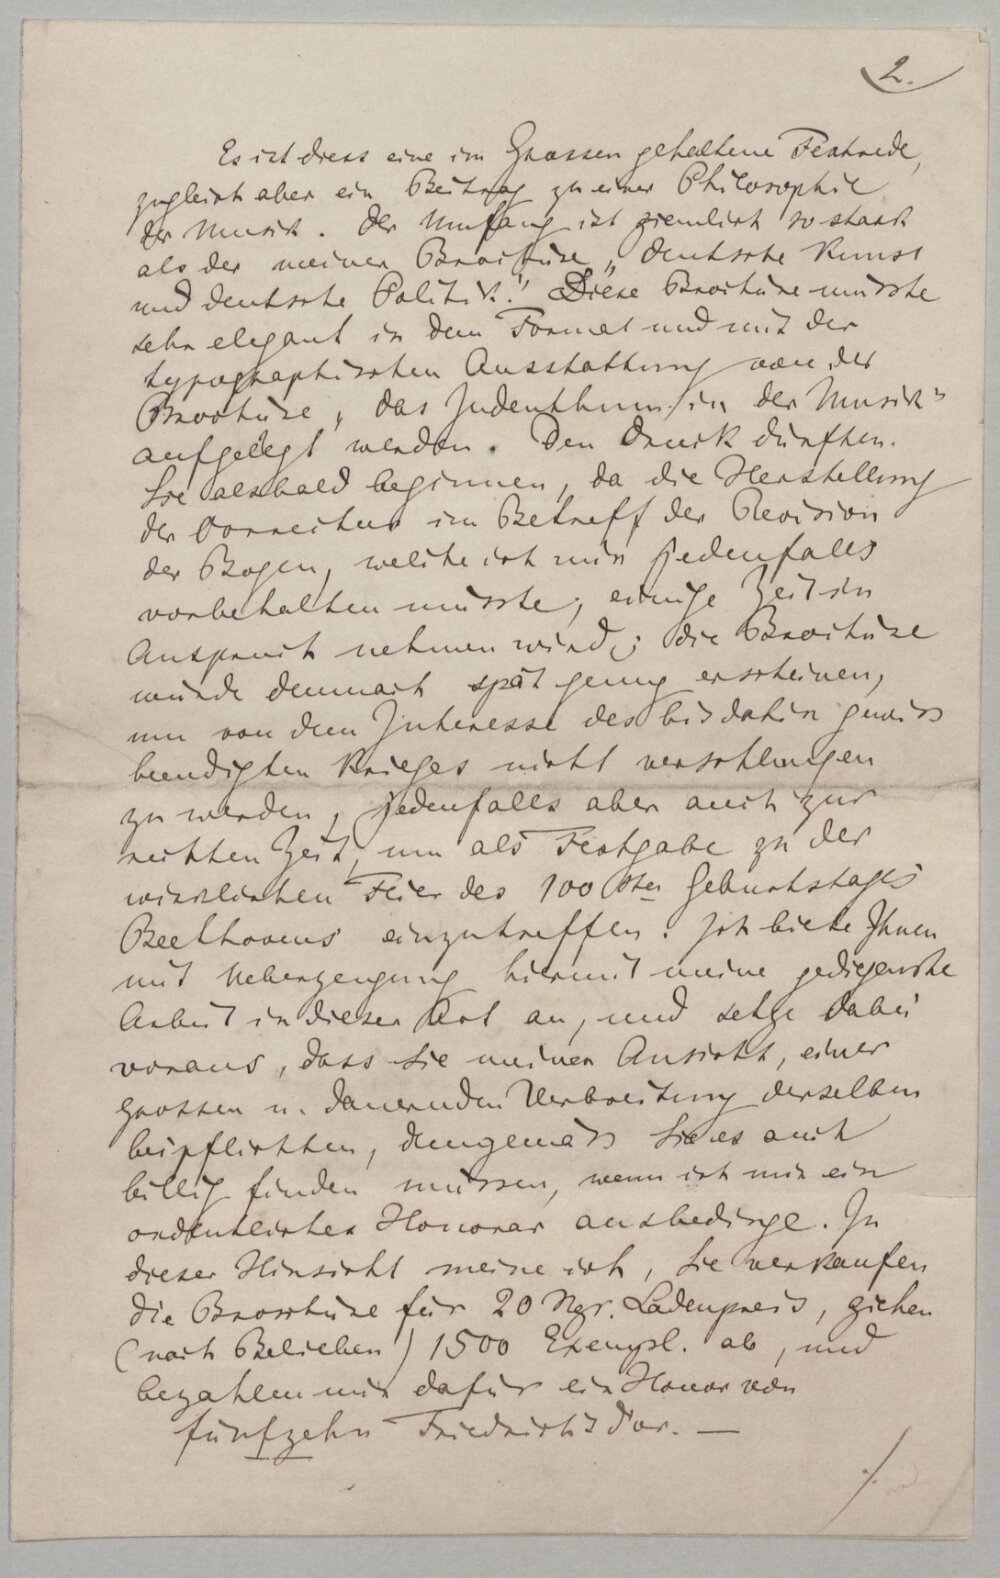 2.
Es ist diess eine im Grossen gehaltene Festrede,
zugleich aber ein Beitrag zu einer Philosophie
der Musik. Der Umfang ist ziemlich so stark
als der meiner Broschüre „deutsche Kunst
und deutsche Politik." Diese Broschüre müsste
sehr elegant in dem Format und mit der
typographischen Ausstattung von der
Broschüre „das Judenthum in der Musik"
aufgelegt werden. Den Druck dürften
Sie alsbald beginnen, da die Herstellung
der Correctur im Betreff der Revision
der Bogen, welche ich mir jedenfalls
vorbehalten müsste, einige Zeit in
Anspruch nehmen wird; die Broschüre
würde demnach spät genug erscheinen,
um von dem Interesse des bis dahin gewiss
beendigten Krieges nicht verschlungen
zu werden, jedenfalls aber auch zur
rechten Zeit, um als Festgabe zu der
wirklichen Feier des 100sten Geburtstages
Beethovens einzutreffen. Ich biete Ihnen
mit Ueberzeugung hiermit meine gediegenste
Arbeit in dieser Art an, und setze dabei
voraus, dass Sie meiner Ansicht, einer
grossen u. dauernden Verbreitung derselben
beipflichten, demgemäss Sie es auch
billig finden müssen, wenn ich mir ein
ordentliches Honorar ausbedinge. In
dieser Hinsicht meine ich, Sie verkaufen
die Broschüre für 20 Ngr. Ladenpreis, ziehen
(nach Belieben) 1500 Exempl. ab, und
bezahlen mir dafür ein Honor von
fünfzehn Friedrichsd'or. —
./.